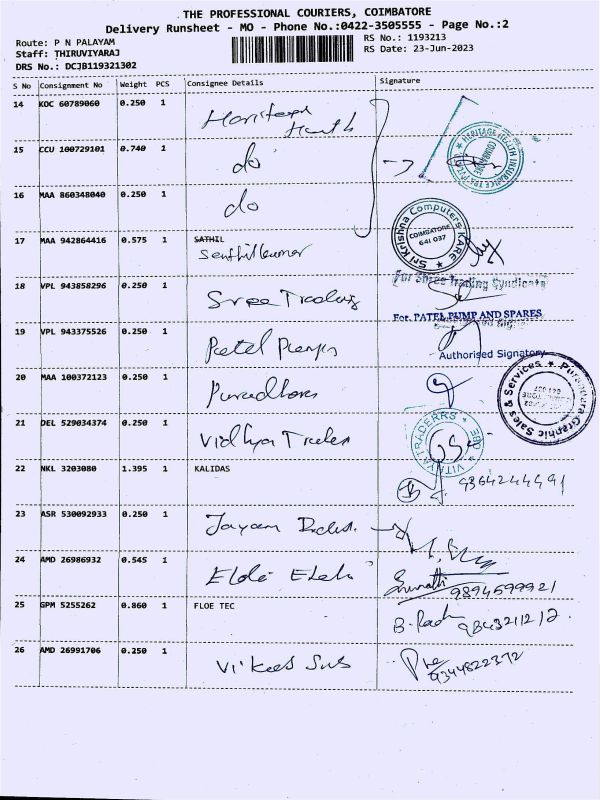 THE PROFESSIONAL COURIERS, COIMBATORE
Delivery Runsheet - MO - Phone No.:0422-3505555 - Page No.:2
Route: P N PALAYAM
RS No.: 1193213
Staff: THIRUVIYARAJ
RS Date: 23-Jun-2023
DRS No.: DCJB119321302
S No Consignment No Weight PCS Consignee Details Signature
14 KOC 60789060 0.250 1
15 CCU 100729101 0.740 1 do
HERITAGE HEALTH INSURANCE
COIMBATORE
16 MAA 860348040 0.250 1 do
17 MAA 942864416 0.575 1 SATHIL
Senthilkumar
Sri Krishna Computers KARE
COIMBATORE
641 037
18 VPL 943858296 0.250 1 Sree Trading
For Shree Trading Syndicate
19 VPL 943375526 0.250 1 Patel Pumps
For. PATEL PUMP AND SPARES
Authorised Signatory
20 MAA 100372123 0.250 1
Graphic Sales & Services
21 DEL 529034374 0.250 1 Vidhya Traders
22 NKL 3203080 1.395 1 KALIDAS
9364244491
23 ASR 530092933 0.250 1 Jayam
24 AMD 26986932 0.545 1
9894599921
25 GPM 5255262 0.860 1 FLOE TEC
9843211212
26 AMD 26991706 0.250 1
9344822372